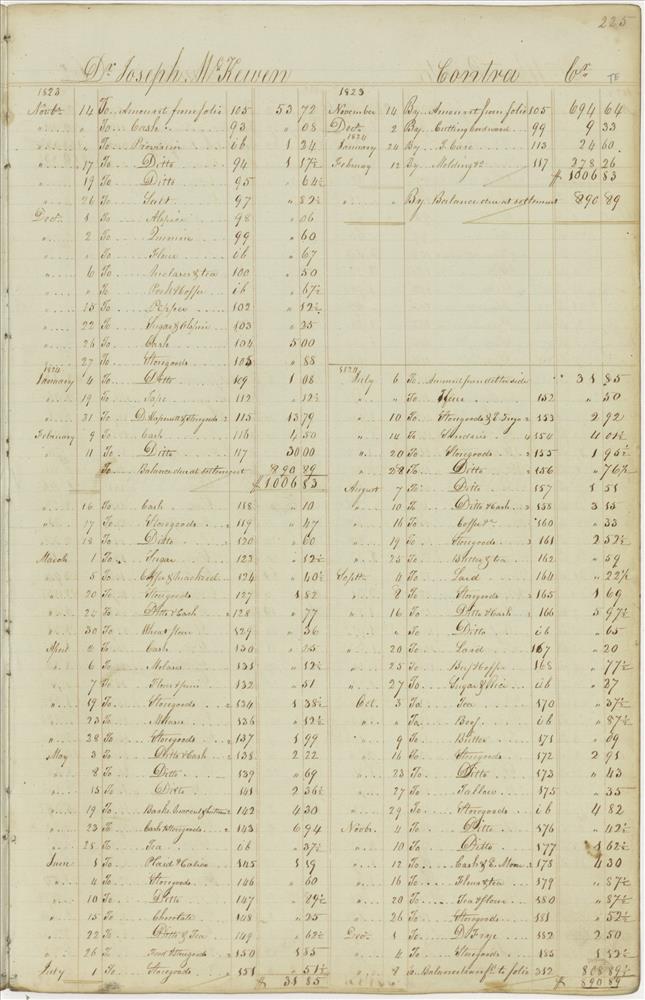 225
Dr. Joseph McKewen
1823
Novbr. 14 To Amount from folio 105 53 72
" " To Cash 93 " 08
" " To Provision ib 1 34
" 17 To Ditto 94 1 17½
" 19 To Ditto 95 " 64½
" 26 To Salt 97 " 82½
Decr. 1 To Alspice 98 " 06
" 2 To 99 " 60
" " To Flour ib " 67
" 6 To Molasses & tea 100 " 50
" " To Pork & Coffee ib " 67½
" 15 To Pepper 102 " 12½
" 22 To Sugar & Alspice 103 " 25
" 26 To Cash 104 5 00
" 27 To Storegoods 105 " 88
1824
January 4 To Ditto 109 1 08
" 19 To 112 " 12½
" 31 To & Storegoods 115 13 79
February 9 To Cash 116 4 50
" 11 To Ditto 117 30 00
To Balance due at settlement 890 89
$1006 83
" 16 To Cash 118 " 10
" 17 To Storegoods 119 " 47
" 18 To Ditto 120 " 60
March 1 To Sugar 122 " 12½
" 5 To Coffee & Mackerel 124 " 40½
" 20 To Storegoods 127 1 82
" 24 To Ditto & Cash 128 " 77
" 30 To Wheat flour 129 " 36
April 2 To Cash 130 " 25
" 6 To Molass 131 " 12½
" 7 To Flour & 132 " 51
" 19 To Storegoods 134 1 38½
" 23 To Molass 136 " 12½
" 28 To Storegoods 137 1 99
May 3 To Ditto & Cash 138 2 22
" 8 To Ditto 139 " 69
" 15 To Ditto 141 2 36½
" 19 To 142 4 30
" 23 To Cash & Storegoods 143 6 94
" 28 To Tea ib " 37½
June 1 To Plaid & Calico 145 1 19
" 4 To Storegoods 146 " 60
" 10 To Ditto 147 " 89½
" 15 To Chocolate 148 " 25
" 22 To Ditto & Tea 149 " 62½
" 26 To & Storegoods 150 1 85
July 1 To Storegoods 151 " 51½
$ 31 85
Contra Cr.
1823
November 14 By Amount from folio 105 694 64
Decr. 2 By Cutting 99 9 33
1824
January 24 By 113 24 60
February 12 By Molding &c 117 278 26
$1006 83
" " By Balance due at settlement 890 89
1824
July 6 To Amount from debtor side 31 85
" " To Flour 152 " 50
" 10 To Storegoods & 153 2 92
" 14 To Sundries 154 4 01½
" 20 To Storegoods 155 1 95½
" 28 To Ditto 156 " 76½
August 7 To Ditto 157 1 51
" 10 To Ditto & Cash 158 3 15
" 16 To Coffee &c 160 " 33
" 19 To Storegoods 161 2 52½
" 25 To Butter & tea 162 " 59
Septr. 4 To Lard 164 " 22½
" 8 To Storegoods 165 1 69
" 16 To Ditto & Cash 166 5 97½
" " To Ditto ib " 65
" 20 To Lard 167 " 20
" 25 To Beef & Coffee 168 " 77½
" 27 To Sugar & Rice ib " 27
Oct. 3 To Tea 170 " 37½
" " To Beef ib " 87½
" 9 To Butter 171 " 09
" 16 To Storegoods 172 2 91
" 23 To Ditto 173 " 43
" 27 To Tallow 175 " 35
" 29 To Storegoods ib 4 82
Novbr. 4 To Ditto 176 " 42½
" 10 To Ditto 177 1 62½
" 12 To Cash & 178 4 30
" 16 To Flour & tea 179 " 87½
" 20 To Tea & flour 180 " 87½
" 26 To Storegoods 181 " 52½
Decr. 1 To 182 2 50
" 4 To Storegoods 185 1 12½
" 8 To Balance transfd. to folio 312 808 89½
$ 890 89